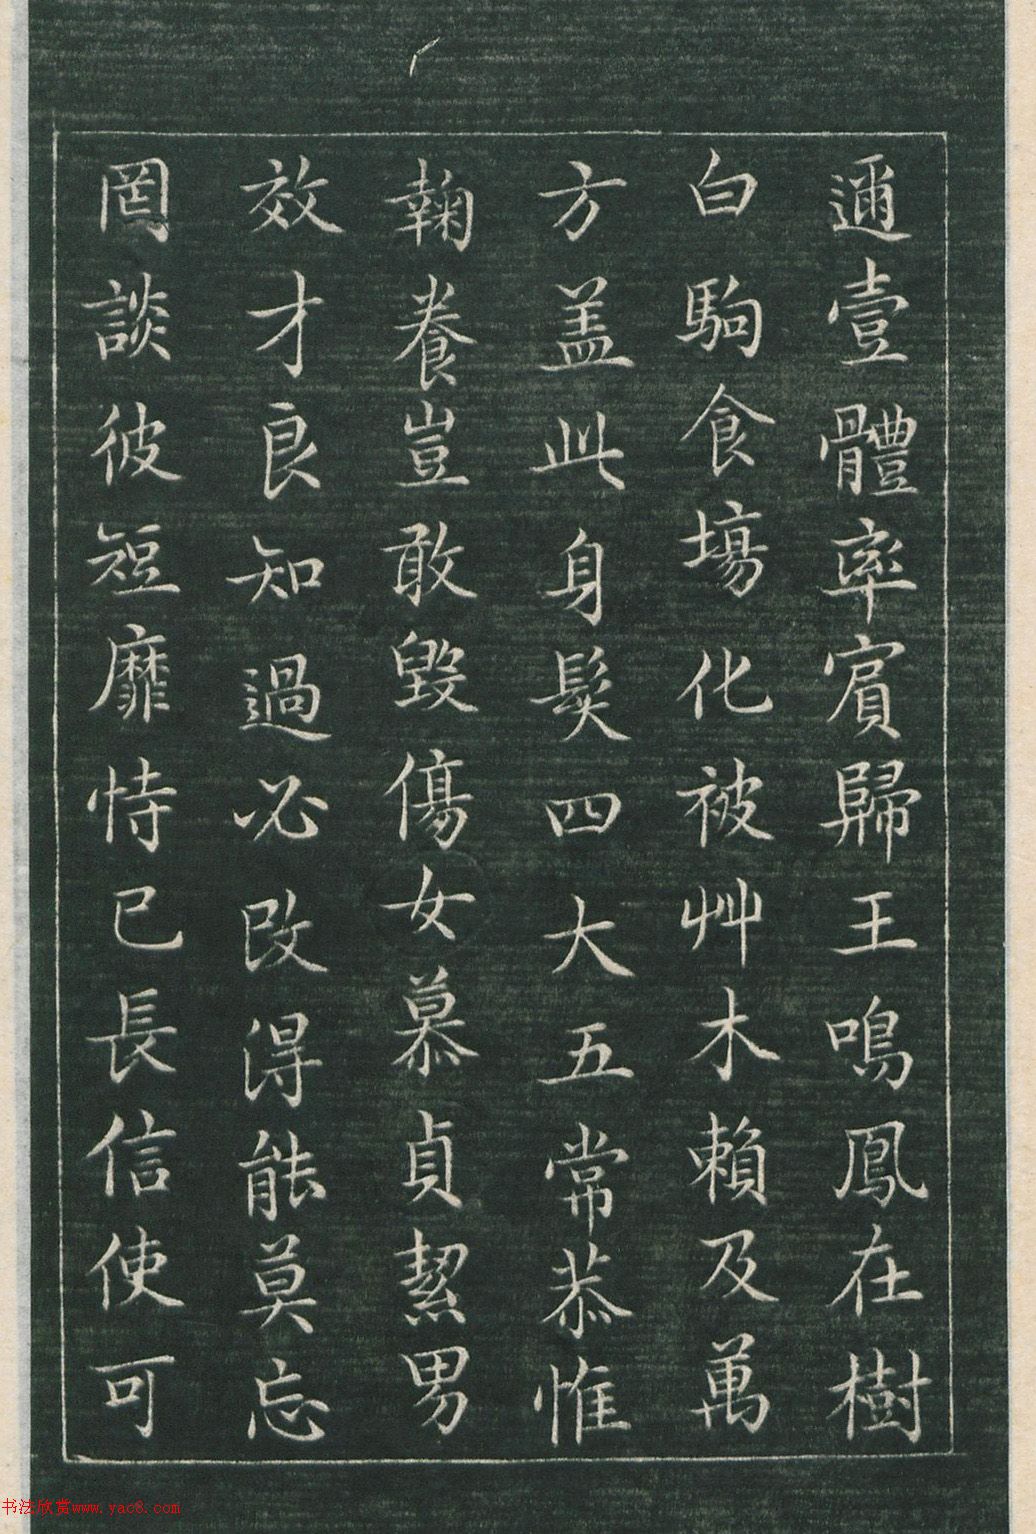 邇壹體率賓歸王鳴鳳在樹
白駒食場化被艸木賴及萬
方盖此身髮四大五常恭惟
鞠養豈敢毀傷女慕貞絜男
效才良知過必改得能莫忘
罔談彼短靡恃己長信使可
书法欣赏www.yac8.com